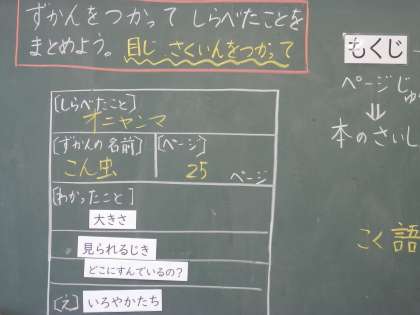 ずかんをつかって しらべたことを
まとめよう。目じ さくいんをつかって
もくじ
ページじゅ
⇓
本のさいし
[しらべたこと]
オニヤンマ
[ずかんの名前] [ページ]
こん虫 25 ページ
[わかったこと]
大きさ
見られるじき
どこにすんでいるの？
[え] いろやかたち
こく語